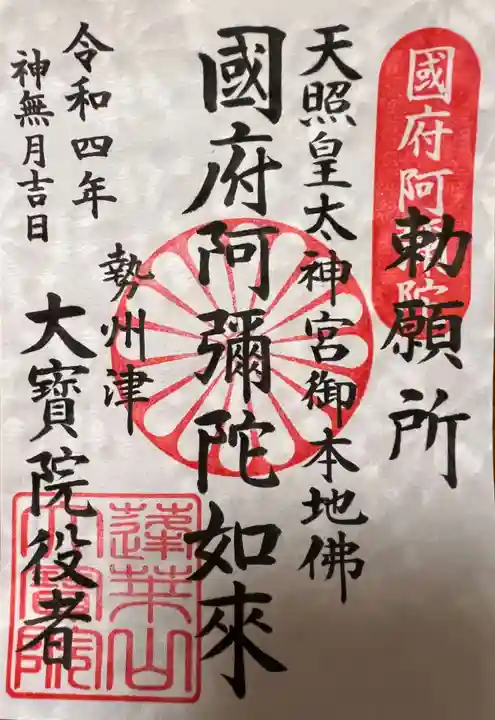 國府阿彌陀
勅願所
天照皇太神宮御本地佛
國府阿彌陀如來
勢州津
大寶院役者
令和四年
神無月吉日
蓮華山
大寶院